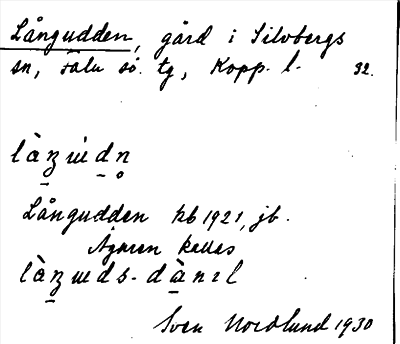 Långudden, gård i Silvbergs
sn, Falu sö. tg, Kopp. l. 32.
Långudden kb 1921, jb.
Ägaren kallas
Sven Nordlund 1930